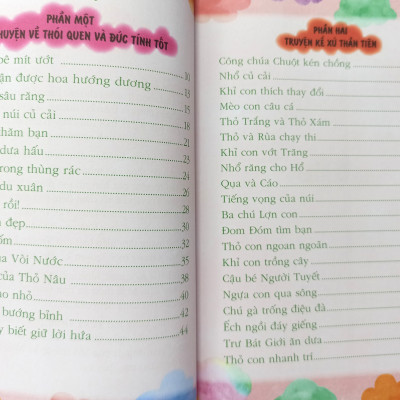 PHẦN MỘT
HUYỆN VỀ THÓI QUEN VÀ ĐỨC TÍNH TỐT
bé mít ướt 10
ận được hoa hướng dương 13
sâu răng 15
núi củ cải 18
thăm bạn 21
dưa hấu 23
rong thùng rác 24
du xuân 26
rồi! 28
đẹp 30
ốm 32
ủa Vòi Nước 35
của Thỏ Nâu 38
ao nhỏ 40
bướng bỉnh 42
y biết giữ lời hứa 44
PHẦN HAI
TRUYỆN KỂ XỨ THẦN TIÊN
Công chúa Chuột kén chồng
Nhổ củ cải
Khỉ con thích thay đổi
Mèo con câu cá
Thỏ Trắng và Thỏ Xám
Thỏ và Rùa chạy thi
Khỉ con vớt Trăng
Nhổ răng cho Hổ
Quạ và Cáo
Tiếng vọng của núi
Ba chú Lợn con
Đom Đóm tìm bạn
Thỏ con ngoan ngoãn
Khỉ con trồng cây
Cậu bé Người Tuyết
Ngựa con qua sông
Chú gà trống điệu đà
Ếch ngồi đáy giếng
Trư Bát Giới ăn dưa
Thỏ con nhanh trí